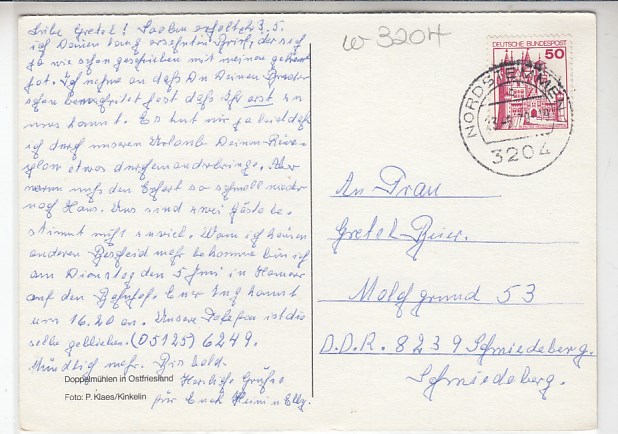 Liebe Gretel! Soeben erhalte 23.5.
ich Deinen lang ersehnten Brief, der sich
so wie schon geschrieben mit meinem gekreuzt
hat. Ich nehme an daß Du Deinen Bruder
schon benachrichtet hast daß Ihr erst zu
uns kommt. Es tut mir ja leid daß
ich durch unseren Urlaub Deinen Reise-
plan etwas durcheinanderbringe. Aber
warum muß den Erhart so schnell wieder
nach Haus. Uns sind zwei Gäste be-
stimmt nicht zuviel. Wenn ich keinen
anderen Bescheid mehr bekomme bin ich
am Dienstag den 5 Juni in Hannover
auf den Bahnhof. Euer Zug kommt
um 16.20 an. Unsere Telefon ist die
selbe geblieben. (05125) 6249.
Mündlich mehr. Bis bald.
Herliche Grüße
für Euch Heini u Elly.
Doppelmühlen in Ostfriesland
Foto: P. Klaes/Kinkelin
w 3204
DEUTSCHE BUNDESPOST
50
NORDSTEMMEN
3204
An Frau
Gretel Beier.
Molchgrund 53
D.D.R. 8239 Schmiedeberg.
Schmiedeberg.